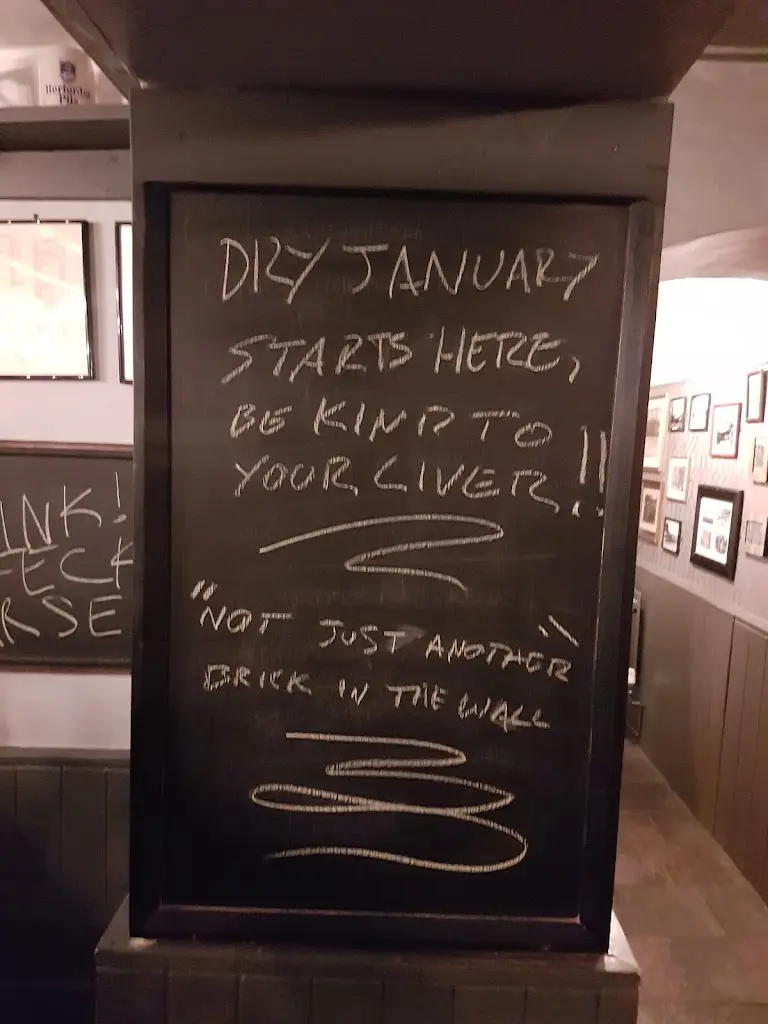 Herforder
Pils
DRY JANUARY
STARTS HERE,
BE KIND TO
YOUR LIVER!!
"NOT JUST ANOTHER"
BRICK IN THE WALL
INK!
FECK
RSE